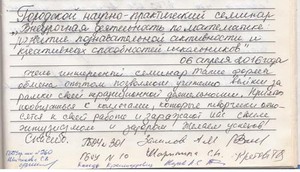 Городской научно-практический семинар
"Внеурочная деятельность по математике
развитие познавательной активности и
креативных способностей школьников"
06 апреля 2016 года
очень интересный семинар. Такие форма
обмена опытом позволит учителю выйти за
рамки своей традиционной деятельности.
пообщаться с коллегами, которые творчески
к своей работе и заражают нас своим
энтузиазмом и задором! Желаем успехов!
Спасибо.
ГБОУ N 10